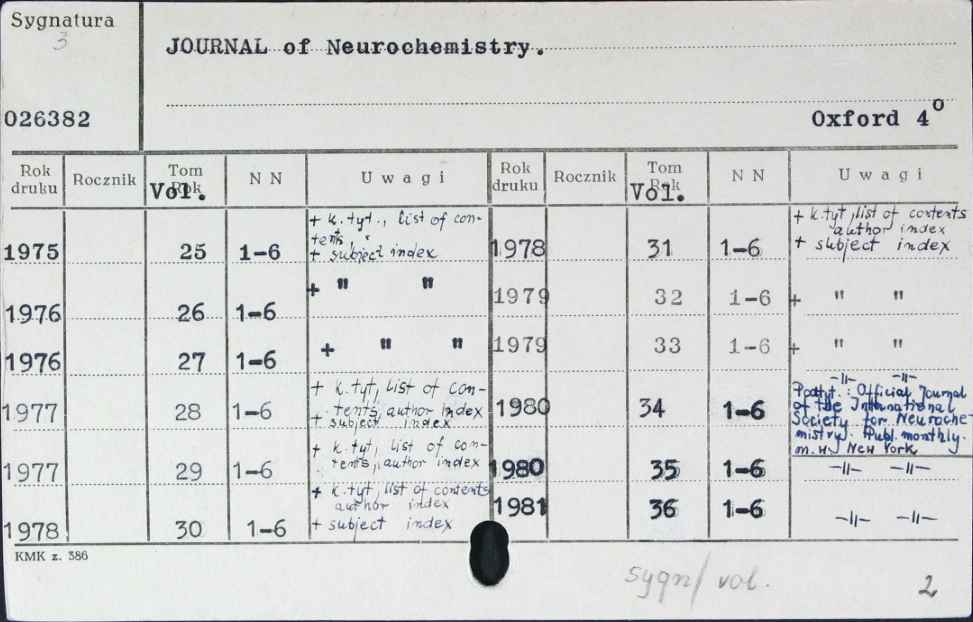 Sygnatura
3
JOURNAL of Neurochemistry.
026382
Oxford 4°
Rok druku Rocznik Tom Rok Vol. NN Uwagi Rok druku Rocznik Tom Rok Vol. NN Uwagi
1975 25 1-6 + k.tyt., list of con-
tents,
+ subject index
1976 26 1-6 + " "
1976 27 1-6 + " "
1977 28 1-6 + k.tyt, list of con-
tents, author index
+ subject index
1977 29 1-6 + k.tyt, list of con-
tents, author index
1978 30 1-6 + k.tyt, list of contents
author index
+ subject index
1978 31 1-6 + k.tyt, list of contents
author index
+ subject index
1979 32 1-6 + " "
1979 33 1-6 + " "
1980 34 1-6 -||- -||-
Podtyt.: Official Journal
of the International
Society for Neuroche
mistry. Publ. monthly.
m.w. New York
1980 35 1-6 -||- -||-
1981 36 1-6 -||- -||-
KMK z. 386
sygn/ vol.
2